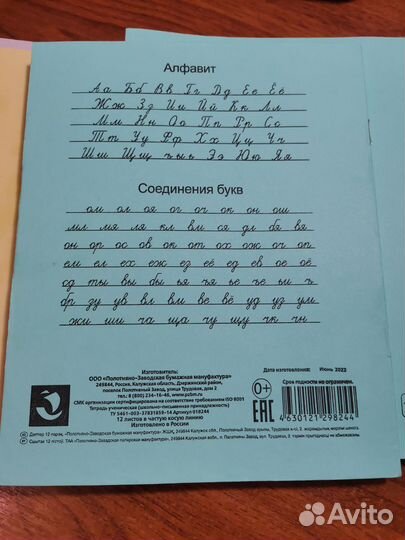 Алфавит
Аа Бб Вв Гг Дд Ее Ёё
Жж Зз Ии Йй Кк Лл
Мм Нн Оо Пп Рр Сс
Тт Уу Фф Хх Цц Чч
Шш Щщ ъ ы ь Ээ Юю Яя
Соединения букв
ом ол оя ог оч ок он ош
мл мя ля кл вм ся дл бя вя
он ор ос ов ок от ох ож оч оп
ем ел ех еж ез её ед ев ое оё
ед ты вы бы ья ъя ье ъе ьи ъ
бр зу ув вл вм ве вё уд уз ум
жи ши ча ща чу щу чк чн
Изготовитель:
ООО «Полотняно-Заводская бумажная мануфактура»
249844, Россия, Калужская область, Дзержинский район,
поселок Полотняный Завод, улица Трудовая, дом 2
тел.: 8 (800) 234-16-46, www.pzbm.ru
СМК организации сертифицирована на соответствие требованиям ISO 9001
Тетрадь ученическая (школьно-письменная принадлежность)
Артикул 018244
12 листов в частую косую линию
Изготовлено в России
Дата изготовления: Июнь 2023
Срок годности не ограничен.
0+
EAC
4 630121 298244
Avito